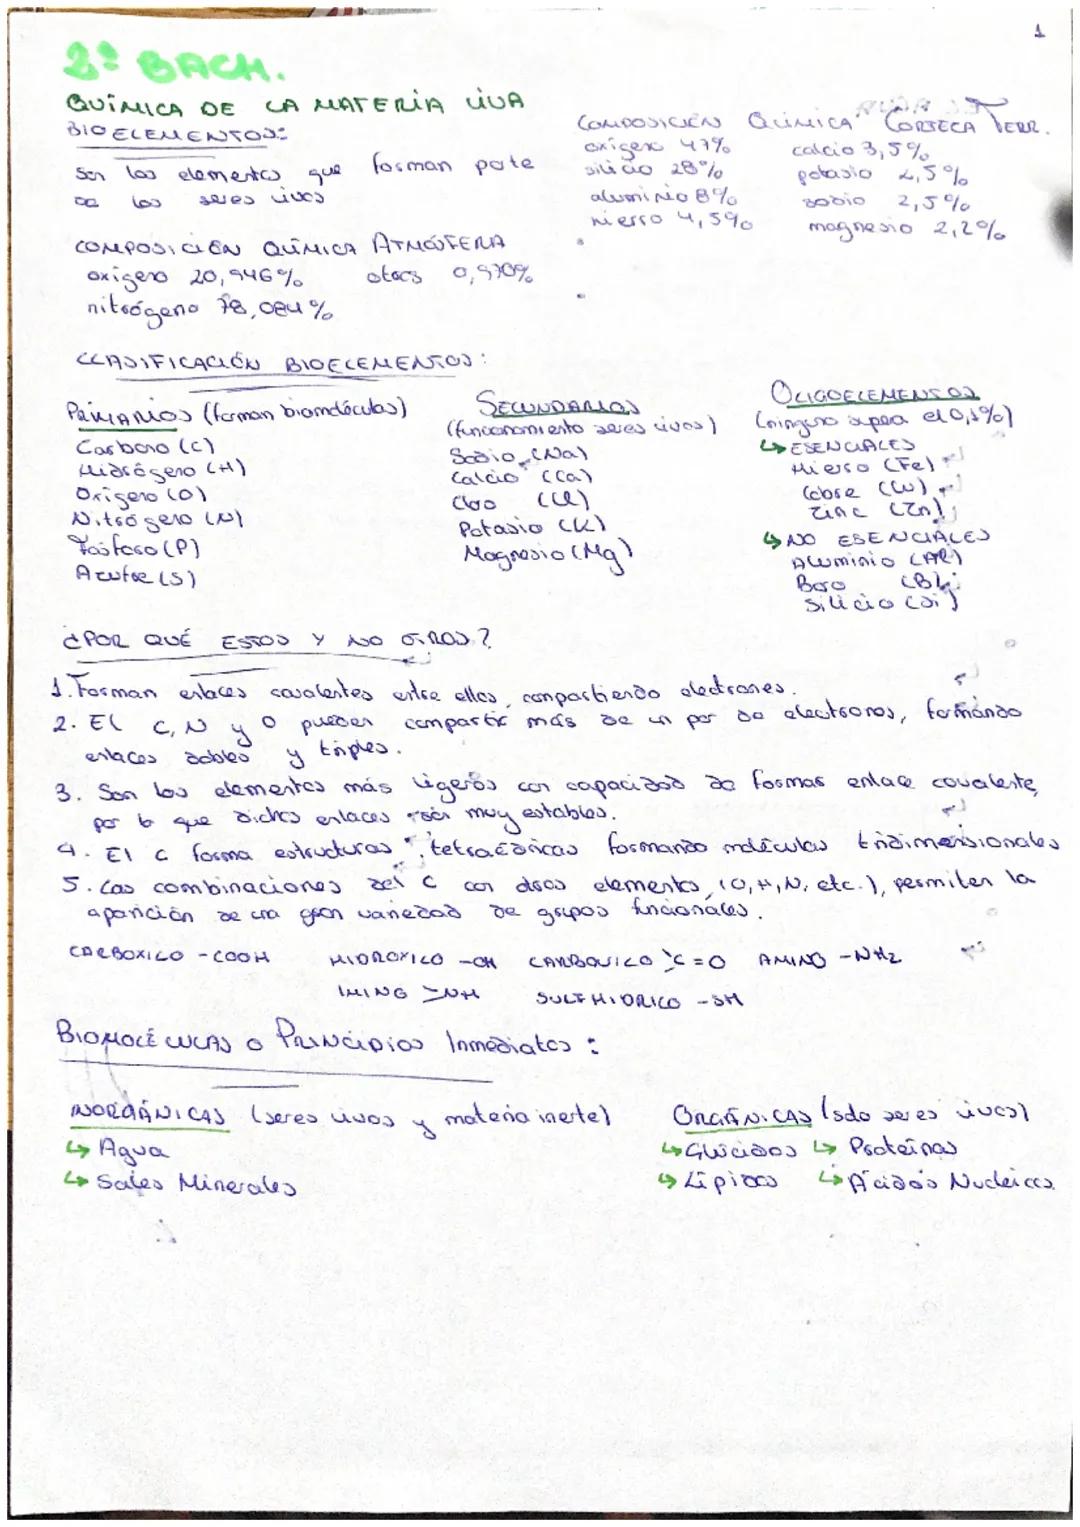 1
2º BACH.
QUÍMICA DE LA MATERIA VIVA
BIOELEMENTOS:
Son los elementos que forman parte
de los seres vivos
COMPOSICIÓN QUÍMICA ATMÓSFERA
oxígeno 20,946% otros 0,970%
nitrógeno 78,084%
COMPOSICIÓN QUÍMICA CORTEZA TERR.
oxígeno 47% calcio 3,5%
silicio 28% potasio 2,5%
aluminio 8% sodio 2,5%
hierro 4,5% magnesio 2,2%
CLASIFICACIÓN BIOELEMENTOS:
PRIMARIOS (forman biomoléculas)
Carbono (C)
Hidrógeno (H)
Oxígeno (O)
Nitrógeno (N)
Fósforo (P)
Azufre (S)
SECUNDARIOS
(funcionamiento seres vivos)
Sodio (Na)
Calcio (Ca)
Cloro (Cl)
Potasio (K)
Magnesio (Mg)
OLIGOELEMENTOS
(ninguno supera el 0,1%)
↳ ESENCIALES
Hierro (Fe)
Cobre (Cu)
Zinc (Zn)
↳ NO ESENCIALES
Aluminio (Al)
Boro (B)
Silicio (Si)
¿POR QUÉ ESTOS Y NO OTROS?
1. Forman enlaces covalentes entre ellos, compartiendo electrones.
2. El C, N y O pueden compartir más de un par de electrones, formando
enlaces dobles y triples.
3. Son los elementos más ligeros con capacidad de formar enlace covalente,
por lo que dichos enlaces son muy estables.
4. El C forma estructuras tetraédricas formando moléculas tridimensionales
5. Las combinaciones del C con otros elementos, (O, H, N, etc.), permiten la
aparición de una gran variedad de grupos funcionales.
CARBOXILO -COOH HIDROXILO -OH CARBONILO >C=O AMINO -NH2
IMINO >NH SULFHIDRILO -SH
BIOMOLÉCULAS o PRINCIPIOS Inmediatos:
INORGÁNICAS (seres vivos y materia inerte)
↳ Agua
↳ Sales Minerales
ORGÁNICAS (sólo seres vivos)
↳ Glúcidos ↳ Proteínas
↳ Lípidos ↳ Ácidos Nucleicos